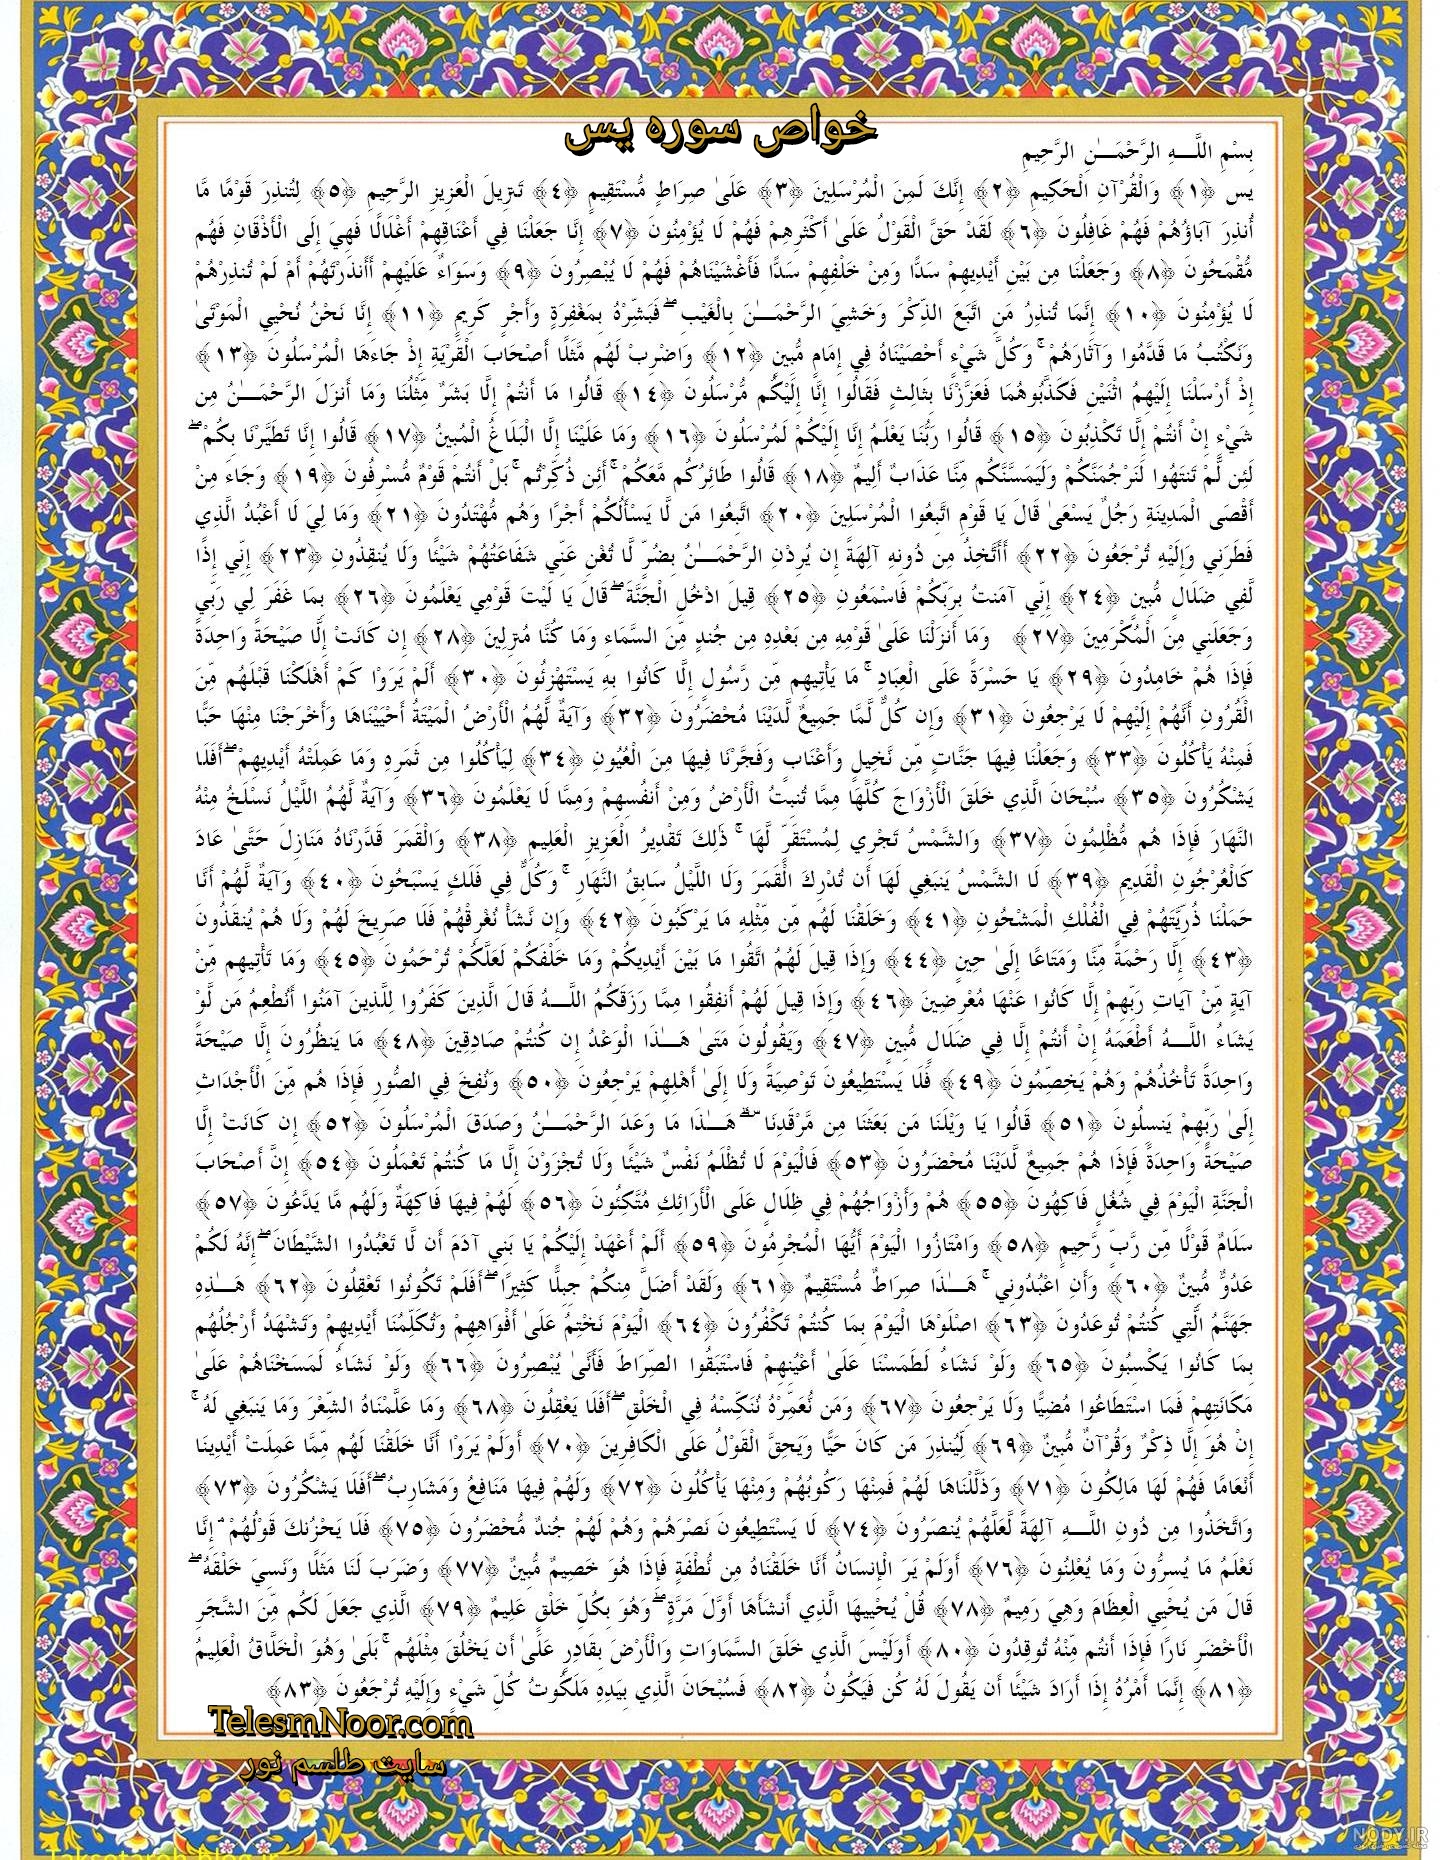 خواص سوره یس
بِسْمِ اللَّـهِ الرَّحْمَـٰنِ الرَّحِيمِ
يس ﴿١﴾ وَالْقُرْآنِ الْحَكِيمِ ﴿٢﴾ إِنَّكَ لَمِنَ الْمُرْسَلِينَ ﴿٣﴾ عَلَىٰ صِرَاطٍ مُّسْتَقِيمٍ ﴿٤﴾ تَنزِيلَ الْعَزِيزِ الرَّحِيمِ ﴿٥﴾ لِتُنذِرَ قَوْمًا مَّا
أُنذِرَ آبَاؤُهُمْ فَهُمْ غَافِلُونَ ﴿٦﴾ لَقَدْ حَقَّ الْقَوْلُ عَلَىٰ أَكْثَرِهِمْ فَهُمْ لَا يُؤْمِنُونَ ﴿٧﴾ إِنَّا جَعَلْنَا فِي أَعْنَاقِهِمْ أَغْلَالًا فَهِيَ إِلَى الْأَذْقَانِ فَهُم
مُّقْمَحُونَ ﴿٨﴾ وَجَعَلْنَا مِن بَيْنِ أَيْدِيهِمْ سَدًّا وَمِنْ خَلْفِهِمْ سَدًّا فَأَغْشَيْنَاهُمْ فَهُمْ لَا يُبْصِرُونَ ﴿٩﴾ وَسَوَاءٌ عَلَيْهِمْ أَأَنذَرْتَهُمْ أَمْ لَمْ تُنذِرْهُمْ
لَا يُؤْمِنُونَ ﴿١٠﴾ إِنَّمَا تُنذِرُ مَنِ اتَّبَعَ الذِّكْرَ وَخَشِيَ الرَّحْمَـٰنَ بِالْغَيْبِ ۖ فَبَشِّرْهُ بِمَغْفِرَةٍ وَأَجْرٍ كَرِيمٍ ﴿١١﴾ إِنَّا نَحْنُ نُحْيِي الْمَوْتَىٰ
وَنَكْتُبُ مَا قَدَّمُوا وَآثَارَهُمْ ۚ وَكُلَّ شَيْءٍ أَحْصَيْنَاهُ فِي إِمَامٍ مُّبِينٍ ﴿١٢﴾ وَاضْرِبْ لَهُم مَّثَلًا أَصْحَابَ الْقَرْيَةِ إِذْ جَاءَهَا الْمُرْسَلُونَ ﴿١٣﴾
إِذْ أَرْسَلْنَا إِلَيْهِمُ اثْنَيْنِ فَكَذَّبُوهُمَا فَعَزَّزْنَا بِثَالِثٍ فَقَالُوا إِنَّا إِلَيْكُم مُّرْسَلُونَ ﴿١٤﴾ قَالُوا مَا أَنتُمْ إِلَّا بَشَرٌ مِّثْلُنَا وَمَا أَنزَلَ الرَّحْمَـٰنُ مِن
شَيْءٍ إِنْ أَنتُمْ إِلَّا تَكْذِبُونَ ﴿١٥﴾ قَالُوا رَبُّنَا يَعْلَمُ إِنَّا إِلَيْكُمْ لَمُرْسَلُونَ ﴿١٦﴾ وَمَا عَلَيْنَا إِلَّا الْبَلَاغُ الْمُبِينُ ﴿١٧﴾ قَالُوا إِنَّا تَطَيَّرْنَا بِكُمْ ۖ
لَئِن لَّمْ تَنتَهُوا لَنَرْجُمَنَّكُمْ وَلَيَمَسَّنَّكُم مِّنَّا عَذَابٌ أَلِيمٌ ﴿١٨﴾ قَالُوا طَائِرُكُم مَّعَكُمْ ۚ أَئِن ذُكِّرْتُم ۚ بَلْ أَنتُمْ قَوْمٌ مُّسْرِفُونَ ﴿١٩﴾ وَجَاءَ مِنْ
أَقْصَى الْمَدِينَةِ رَجُلٌ يَسْعَىٰ قَالَ يَا قَوْمِ اتَّبِعُوا الْمُرْسَلِينَ ﴿٢٠﴾ اتَّبِعُوا مَن لَّا يَسْأَلُكُمْ أَجْرًا وَهُم مُّهْتَدُونَ ﴿٢١﴾ وَمَا لِيَ لَا أَعْبُدُ الَّذِي
فَطَرَنِي وَإِلَيْهِ تُرْجَعُونَ ﴿٢٢﴾ أَأَتَّخِذُ مِن دُونِهِ آلِهَةً إِن يُرِدْنِ الرَّحْمَـٰنُ بِضُرٍّ لَّا تُغْنِ عَنِّي شَفَاعَتُهُمْ شَيْئًا وَلَا يُنقِذُونِ ﴿٢٣﴾ إِنِّي إِذًا
لَّفِي ضَلَالٍ مُّبِينٍ ﴿٢٤﴾ إِنِّي آمَنتُ بِرَبِّكُمْ فَاسْمَعُونِ ﴿٢٥﴾ قِيلَ ادْخُلِ الْجَنَّةَ ۖ قَالَ يَا لَيْتَ قَوْمِي يَعْلَمُونَ ﴿٢٦﴾ بِمَا غَفَرَ لِي رَبِّي
وَجَعَلَنِي مِنَ الْمُكْرَمِينَ ﴿٢٧﴾ وَمَا أَنزَلْنَا عَلَىٰ قَوْمِهِ مِن بَعْدِهِ مِن جُندٍ مِّنَ السَّمَاءِ وَمَا كُنَّا مُنزِلِينَ ﴿٢٨﴾ إِن كَانَتْ إِلَّا صَيْحَةً وَاحِدَةً
فَإِذَا هُمْ خَامِدُونَ ﴿٢٩﴾ يَا حَسْرَةً عَلَى الْعِبَادِ ۚ مَا يَأْتِيهِم مِّن رَّسُولٍ إِلَّا كَانُوا بِهِ يَسْتَهْزِئُونَ ﴿٣٠﴾ أَلَمْ يَرَوْا كَمْ أَهْلَكْنَا قَبْلَهُم مِّنَ
الْقُرُونِ أَنَّهُمْ إِلَيْهِمْ لَا يَرْجِعُونَ ﴿٣١﴾ وَإِن كُلٌّ لَّمَّا جَمِيعٌ لَّدَيْنَا مُحْضَرُونَ ﴿٣٢﴾ وَآيَةٌ لَّهُمُ الْأَرْضُ الْمَيْتَةُ أَحْيَيْنَاهَا وَأَخْرَجْنَا مِنْهَا حَبًّا
فَمِنْهُ يَأْكُلُونَ ﴿٣٣﴾ وَجَعَلْنَا فِيهَا جَنَّاتٍ مِّن نَّخِيلٍ وَأَعْنَابٍ وَفَجَّرْنَا فِيهَا مِنَ الْعُيُونِ ﴿٣٤﴾ لِيَأْكُلُوا مِن ثَمَرِهِ وَمَا عَمِلَتْهُ أَيْدِيهِمْ ۖ أَفَلَا
يَشْكُرُونَ ﴿٣٥﴾ سُبْحَانَ الَّذِي خَلَقَ الْأَزْوَاجَ كُلَّهَا مِمَّا تُنبِتُ الْأَرْضُ وَمِنْ أَنفُسِهِمْ وَمِمَّا لَا يَعْلَمُونَ ﴿٣٦﴾ وَآيَةٌ لَّهُمُ اللَّيْلُ نَسْلَخُ مِنْهُ
النَّهَارَ فَإِذَا هُم مُّظْلِمُونَ ﴿٣٧﴾ وَالشَّمْسُ تَجْرِي لِمُسْتَقَرٍّ لَّهَا ۚ ذَٰلِكَ تَقْدِيرُ الْعَزِيزِ الْعَلِيمِ ﴿٣٨﴾ وَالْقَمَرَ قَدَّرْنَاهُ مَنَازِلَ حَتَّىٰ عَادَ
كَالْعُرْجُونِ الْقَدِيمِ ﴿٣٩﴾ لَا الشَّمْسُ يَنبَغِي لَهَا أَن تُدْرِكَ الْقَمَرَ وَلَا اللَّيْلُ سَابِقُ النَّهَارِ ۚ وَكُلٌّ فِي فَلَكٍ يَسْبَحُونَ ﴿٤٠﴾ وَآيَةٌ لَّهُمْ أَنَّا
حَمَلْنَا ذُرِّيَّتَهُمْ فِي الْفُلْكِ الْمَشْحُونِ ﴿٤١﴾ وَخَلَقْنَا لَهُم مِّن مِّثْلِهِ مَا يَرْكَبُونَ ﴿٤٢﴾ وَإِن نَّشَأْ نُغْرِقْهُمْ فَلَا صَرِيخَ لَهُمْ وَلَا هُمْ يُنقَذُونَ
﴿٤٣﴾ إِلَّا رَحْمَةً مِّنَّا وَمَتَاعًا إِلَىٰ حِينٍ ﴿٤٤﴾ وَإِذَا قِيلَ لَهُمُ اتَّقُوا مَا بَيْنَ أَيْدِيكُمْ وَمَا خَلْفَكُمْ لَعَلَّكُمْ تُرْحَمُونَ ﴿٤٥﴾ وَمَا تَأْتِيهِم مِّنْ
آيَةٍ مِّنْ آيَاتِ رَبِّهِمْ إِلَّا كَانُوا عَنْهَا مُعْرِضِينَ ﴿٤٦﴾ وَإِذَا قِيلَ لَهُمْ أَنفِقُوا مِمَّا رَزَقَكُمُ اللَّـهُ قَالَ الَّذِينَ كَفَرُوا لِلَّذِينَ آمَنُوا أَنُطْعِمُ مَن لَّوْ
يَشَاءُ اللَّـهُ أَطْعَمَهُ إِنْ أَنتُمْ إِلَّا فِي ضَلَالٍ مُّبِينٍ ﴿٤٧﴾ وَيَقُولُونَ مَتَىٰ هَـٰذَا الْوَعْدُ إِن كُنتُمْ صَادِقِينَ ﴿٤٨﴾ مَا يَنظُرُونَ إِلَّا صَيْحَةً
وَاحِدَةً تَأْخُذُهُمْ وَهُمْ يَخِصِّمُونَ ﴿٤٩﴾ فَلَا يَسْتَطِيعُونَ تَوْصِيَةً وَلَا إِلَىٰ أَهْلِهِمْ يَرْجِعُونَ ﴿٥٠﴾ وَنُفِخَ فِي الصُّورِ فَإِذَا هُم مِّنَ الْأَجْدَاثِ
إِلَىٰ رَبِّهِمْ يَنسِلُونَ ﴿٥١﴾ قَالُوا يَا وَيْلَنَا مَن بَعَثَنَا مِن مَّرْقَدِنَا ۜ ۗ هَـٰذَا مَا وَعَدَ الرَّحْمَـٰنُ وَصَدَقَ الْمُرْسَلُونَ ﴿٥٢﴾ إِن كَانَتْ إِلَّا
صَيْحَةً وَاحِدَةً فَإِذَا هُمْ جَمِيعٌ لَّدَيْنَا مُحْضَرُونَ ﴿٥٣﴾ فَالْيَوْمَ لَا تُظْلَمُ نَفْسٌ شَيْئًا وَلَا تُجْزَوْنَ إِلَّا مَا كُنتُمْ تَعْمَلُونَ ﴿٥٤﴾ إِنَّ أَصْحَابَ
الْجَنَّةِ الْيَوْمَ فِي شُغُلٍ فَاكِهُونَ ﴿٥٥﴾ هُمْ وَأَزْوَاجُهُمْ فِي ظِلَالٍ عَلَى الْأَرَائِكِ مُتَّكِئُونَ ﴿٥٦﴾ لَهُمْ فِيهَا فَاكِهَةٌ وَلَهُم مَّا يَدَّعُونَ ﴿٥٧﴾
سَلَامٌ قَوْلًا مِّن رَّبٍّ رَّحِيمٍ ﴿٥٨﴾ وَامْتَازُوا الْيَوْمَ أَيُّهَا الْمُجْرِمُونَ ﴿٥٩﴾ أَلَمْ أَعْهَدْ إِلَيْكُمْ يَا بَنِي آدَمَ أَن لَّا تَعْبُدُوا الشَّيْطَانَ ۖ إِنَّهُ لَكُمْ
عَدُوٌّ مُّبِينٌ ﴿٦٠﴾ وَأَنِ اعْبُدُونِي ۚ هَـٰذَا صِرَاطٌ مُّسْتَقِيمٌ ﴿٦١﴾ وَلَقَدْ أَضَلَّ مِنكُمْ جِبِلًّا كَثِيرًا ۖ أَفَلَمْ تَكُونُوا تَعْقِلُونَ ﴿٦٢﴾ هَـٰذِهِ
جَهَنَّمُ الَّتِي كُنتُمْ تُوعَدُونَ ﴿٦٣﴾ اصْلَوْهَا الْيَوْمَ بِمَا كُنتُمْ تَكْفُرُونَ ﴿٦٤﴾ الْيَوْمَ نَخْتِمُ عَلَىٰ أَفْوَاهِهِمْ وَتُكَلِّمُنَا أَيْدِيهِمْ وَتَشْهَدُ أَرْجُلُهُم
بِمَا كَانُوا يَكْسِبُونَ ﴿٦٥﴾ وَلَوْ نَشَاءُ لَطَمَسْنَا عَلَىٰ أَعْيُنِهِمْ فَاسْتَبَقُوا الصِّرَاطَ فَأَنَّىٰ يُبْصِرُونَ ﴿٦٦﴾ وَلَوْ نَشَاءُ لَمَسَخْنَاهُمْ عَلَىٰ
مَكَانَتِهِمْ فَمَا اسْتَطَاعُوا مُضِيًّا وَلَا يَرْجِعُونَ ﴿٦٧﴾ وَمَن نُّعَمِّرْهُ نُنَكِّسْهُ فِي الْخَلْقِ ۖ أَفَلَا يَعْقِلُونَ ﴿٦٨﴾ وَمَا عَلَّمْنَاهُ الشِّعْرَ وَمَا يَنبَغِي لَهُ ۚ
إِنْ هُوَ إِلَّا ذِكْرٌ وَقُرْآنٌ مُّبِينٌ ﴿٦٩﴾ لِّيُنذِرَ مَن كَانَ حَيًّا وَيَحِقَّ الْقَوْلُ عَلَى الْكَافِرِينَ ﴿٧٠﴾ أَوَلَمْ يَرَوْا أَنَّا خَلَقْنَا لَهُم مِّمَّا عَمِلَتْ أَيْدِينَا
أَنْعَامًا فَهُمْ لَهَا مَالِكُونَ ﴿٧١﴾ وَذَلَّلْنَاهَا لَهُمْ فَمِنْهَا رَكُوبُهُمْ وَمِنْهَا يَأْكُلُونَ ﴿٧٢﴾ وَلَهُمْ فِيهَا مَنَافِعُ وَمَشَارِبُ ۖ أَفَلَا يَشْكُرُونَ ﴿٧٣﴾
وَاتَّخَذُوا مِن دُونِ اللَّـهِ آلِهَةً لَّعَلَّهُمْ يُنصَرُونَ ﴿٧٤﴾ لَا يَسْتَطِيعُونَ نَصْرَهُمْ وَهُمْ لَهُمْ جُندٌ مُّحْضَرُونَ ﴿٧٥﴾ فَلَا يَحْزُنكَ قَوْلُهُمْ ۘ إِنَّا
نَعْلَمُ مَا يُسِرُّونَ وَمَا يُعْلِنُونَ ﴿٧٦﴾ أَوَلَمْ يَرَ الْإِنسَانُ أَنَّا خَلَقْنَاهُ مِن نُّطْفَةٍ فَإِذَا هُوَ خَصِيمٌ مُّبِينٌ ﴿٧٧﴾ وَضَرَبَ لَنَا مَثَلًا وَنَسِيَ خَلْقَهُ ۖ
قَالَ مَن يُحْيِي الْعِظَامَ وَهِيَ رَمِيمٌ ﴿٧٨﴾ قُلْ يُحْيِيهَا الَّذِي أَنشَأَهَا أَوَّلَ مَرَّةٍ ۖ وَهُوَ بِكُلِّ خَلْقٍ عَلِيمٌ ﴿٧٩﴾ الَّذِي جَعَلَ لَكُم مِّنَ الشَّجَرِ
الْأَخْضَرِ نَارًا فَإِذَا أَنتُم مِّنْهُ تُوقِدُونَ ﴿٨٠﴾ أَوَلَيْسَ الَّذِي خَلَقَ السَّمَاوَاتِ وَالْأَرْضَ بِقَادِرٍ عَلَىٰ أَن يَخْلُقَ مِثْلَهُم ۚ بَلَىٰ وَهُوَ الْخَلَّاقُ الْعَلِيمُ
﴿٨١﴾ إِنَّمَا أَمْرُهُ إِذَا أَرَادَ شَيْئًا أَن يَقُولَ لَهُ كُن فَيَكُونُ ﴿٨٢﴾ فَسُبْحَانَ الَّذِي بِيَدِهِ مَلَكُوتُ كُلِّ شَيْءٍ وَإِلَيْهِ تُرْجَعُونَ ﴿٨٣﴾
TelesmNoor.com
سایت طلسم نور
NODY.IR